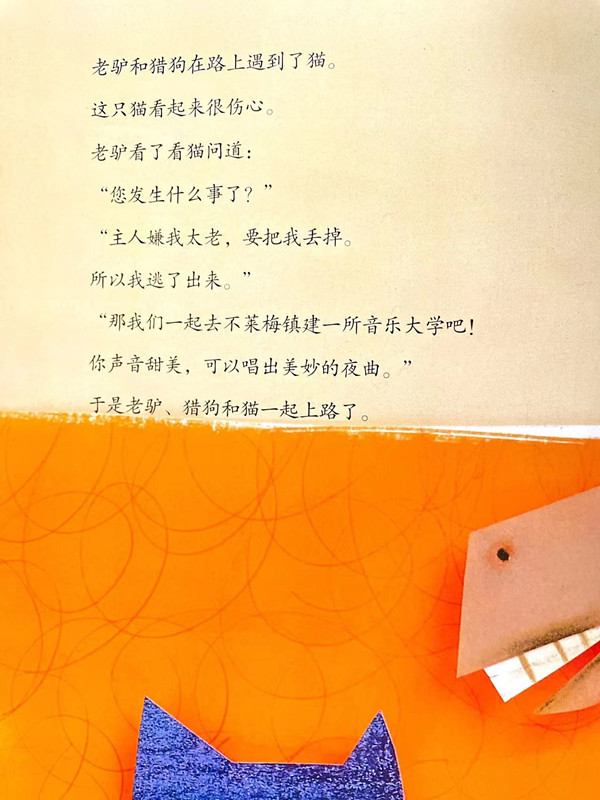 老驴和猎狗在路上遇到了猫。
这只猫看起来很伤心。
老驴看了看猫问道：
“您发生什么事了？”
“主人嫌我太老，要把我丢掉。
所以我逃了出来。”
“那我们一起去不莱梅镇建一所音乐大学吧！
你声音甜美，可以唱出美妙的夜曲。”
于是老驴、猎狗和猫一起上路了。